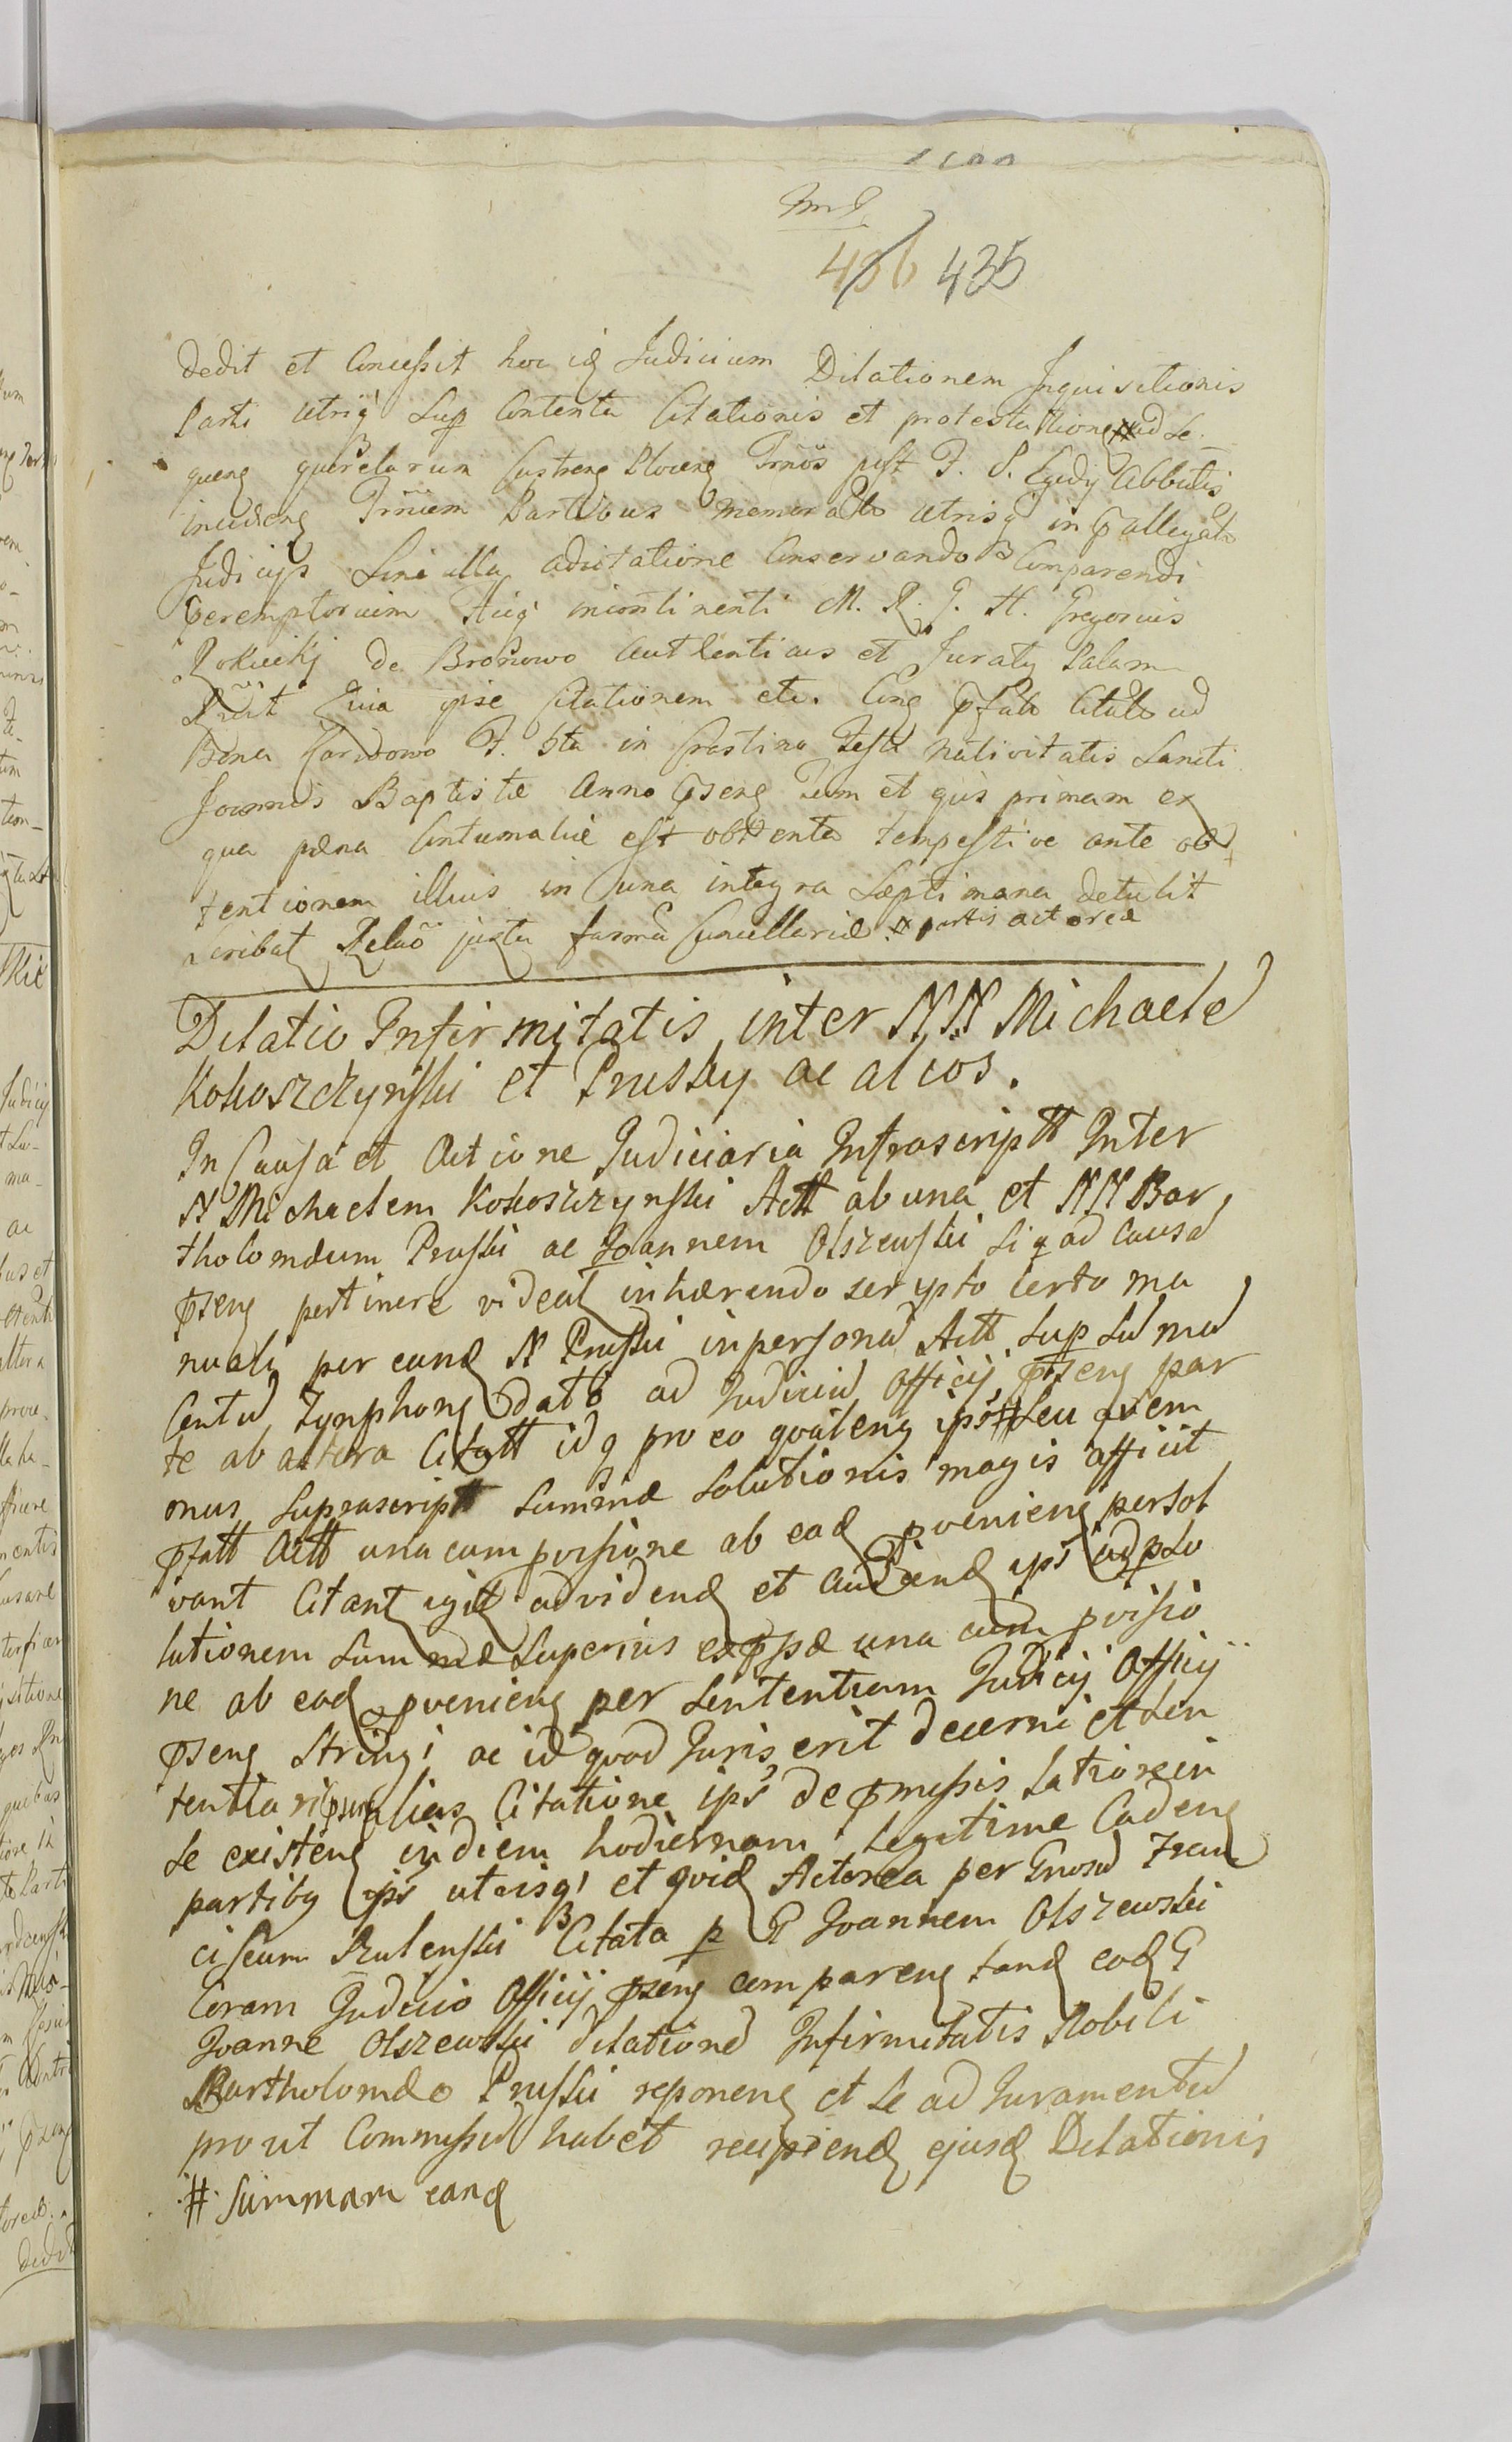 436 435
dedit et Concessit hoc idq Judicium Dilationem Inquisitionis
Parti utriq Sup Contenta Citationis et protestationem ad Se-
queng querelarum Castreng Ploceng Trnos post F. S. Egidy Abbatis
incideng Trnum Partibus memorato utrisq in pallegato
Judicijs Sine ulla adcitatione Conservando Comparendi
peremptorium Hicq incontinenti M. R. G. H. Gregorius
de Bronowo Authenticus et Juraty Palam
Citationem
Bona F. 6ta in Crastino Festi Nativitatis Sancti
Joannis Baptistæ Anno pseng Tum et primam ex
qua pæna Contumaciæ est obtenta tempestive ante ob
tentionem illius in una integra Septimana detulit
Scribat Relaõ juxta formã Cancellariæ # partis actoreæ
Dilatio Infirmitatis inter NN Michaele
Kokoszczynski et Pruski ac alios.
In Causa et Actione Judiciaria Infrascriptt Inter
N Michaelem Kokoszczynski Actt ab una et NN Bar
tholomæum Pruski ac Joannem Olszewski Siq ad Causã
pseng pertinere videat inhærendo scrypto certo ma
nuali per eund N Pruski in personã Actt Sup Sũmã
Centũ Tynphong dato ad Judiciũ Officij pseng par
te ab altera Citatt idq pro eo quateng ips # Seu
onus Suprascriptt Summæ Solutionis magis afficit
pfatt Actt una cum pvisione ab ead pvenieng persol
vant Citant igitt ad vidend et audiend ips ad pso
lutionem Summæ Superius expssæ una cum pvisio
ne ab ead pvenieng per Sententiam Judicij Officij
pseng Stringi ac id quod Juris erit decerni et Sen
tentiari pseng alias Citatione ips de pmissis latiore in
se existeng in diem hodiernam Legitime Cadeng
partiby ips utrisq et quid Actorea per Gnosũ Fran
ciscum Rulenski Citata p G Joannem Olszewski
Coram Judicio Officij pseng compareng tand eod G
Joanne Olszewski dilationẽ Infirmitatis Nobili
Bartholomæo Pruski reponeng et Se ad Juramentũ
prout Commissũ habet recipiend ejusd Dilationis
# Summam eand